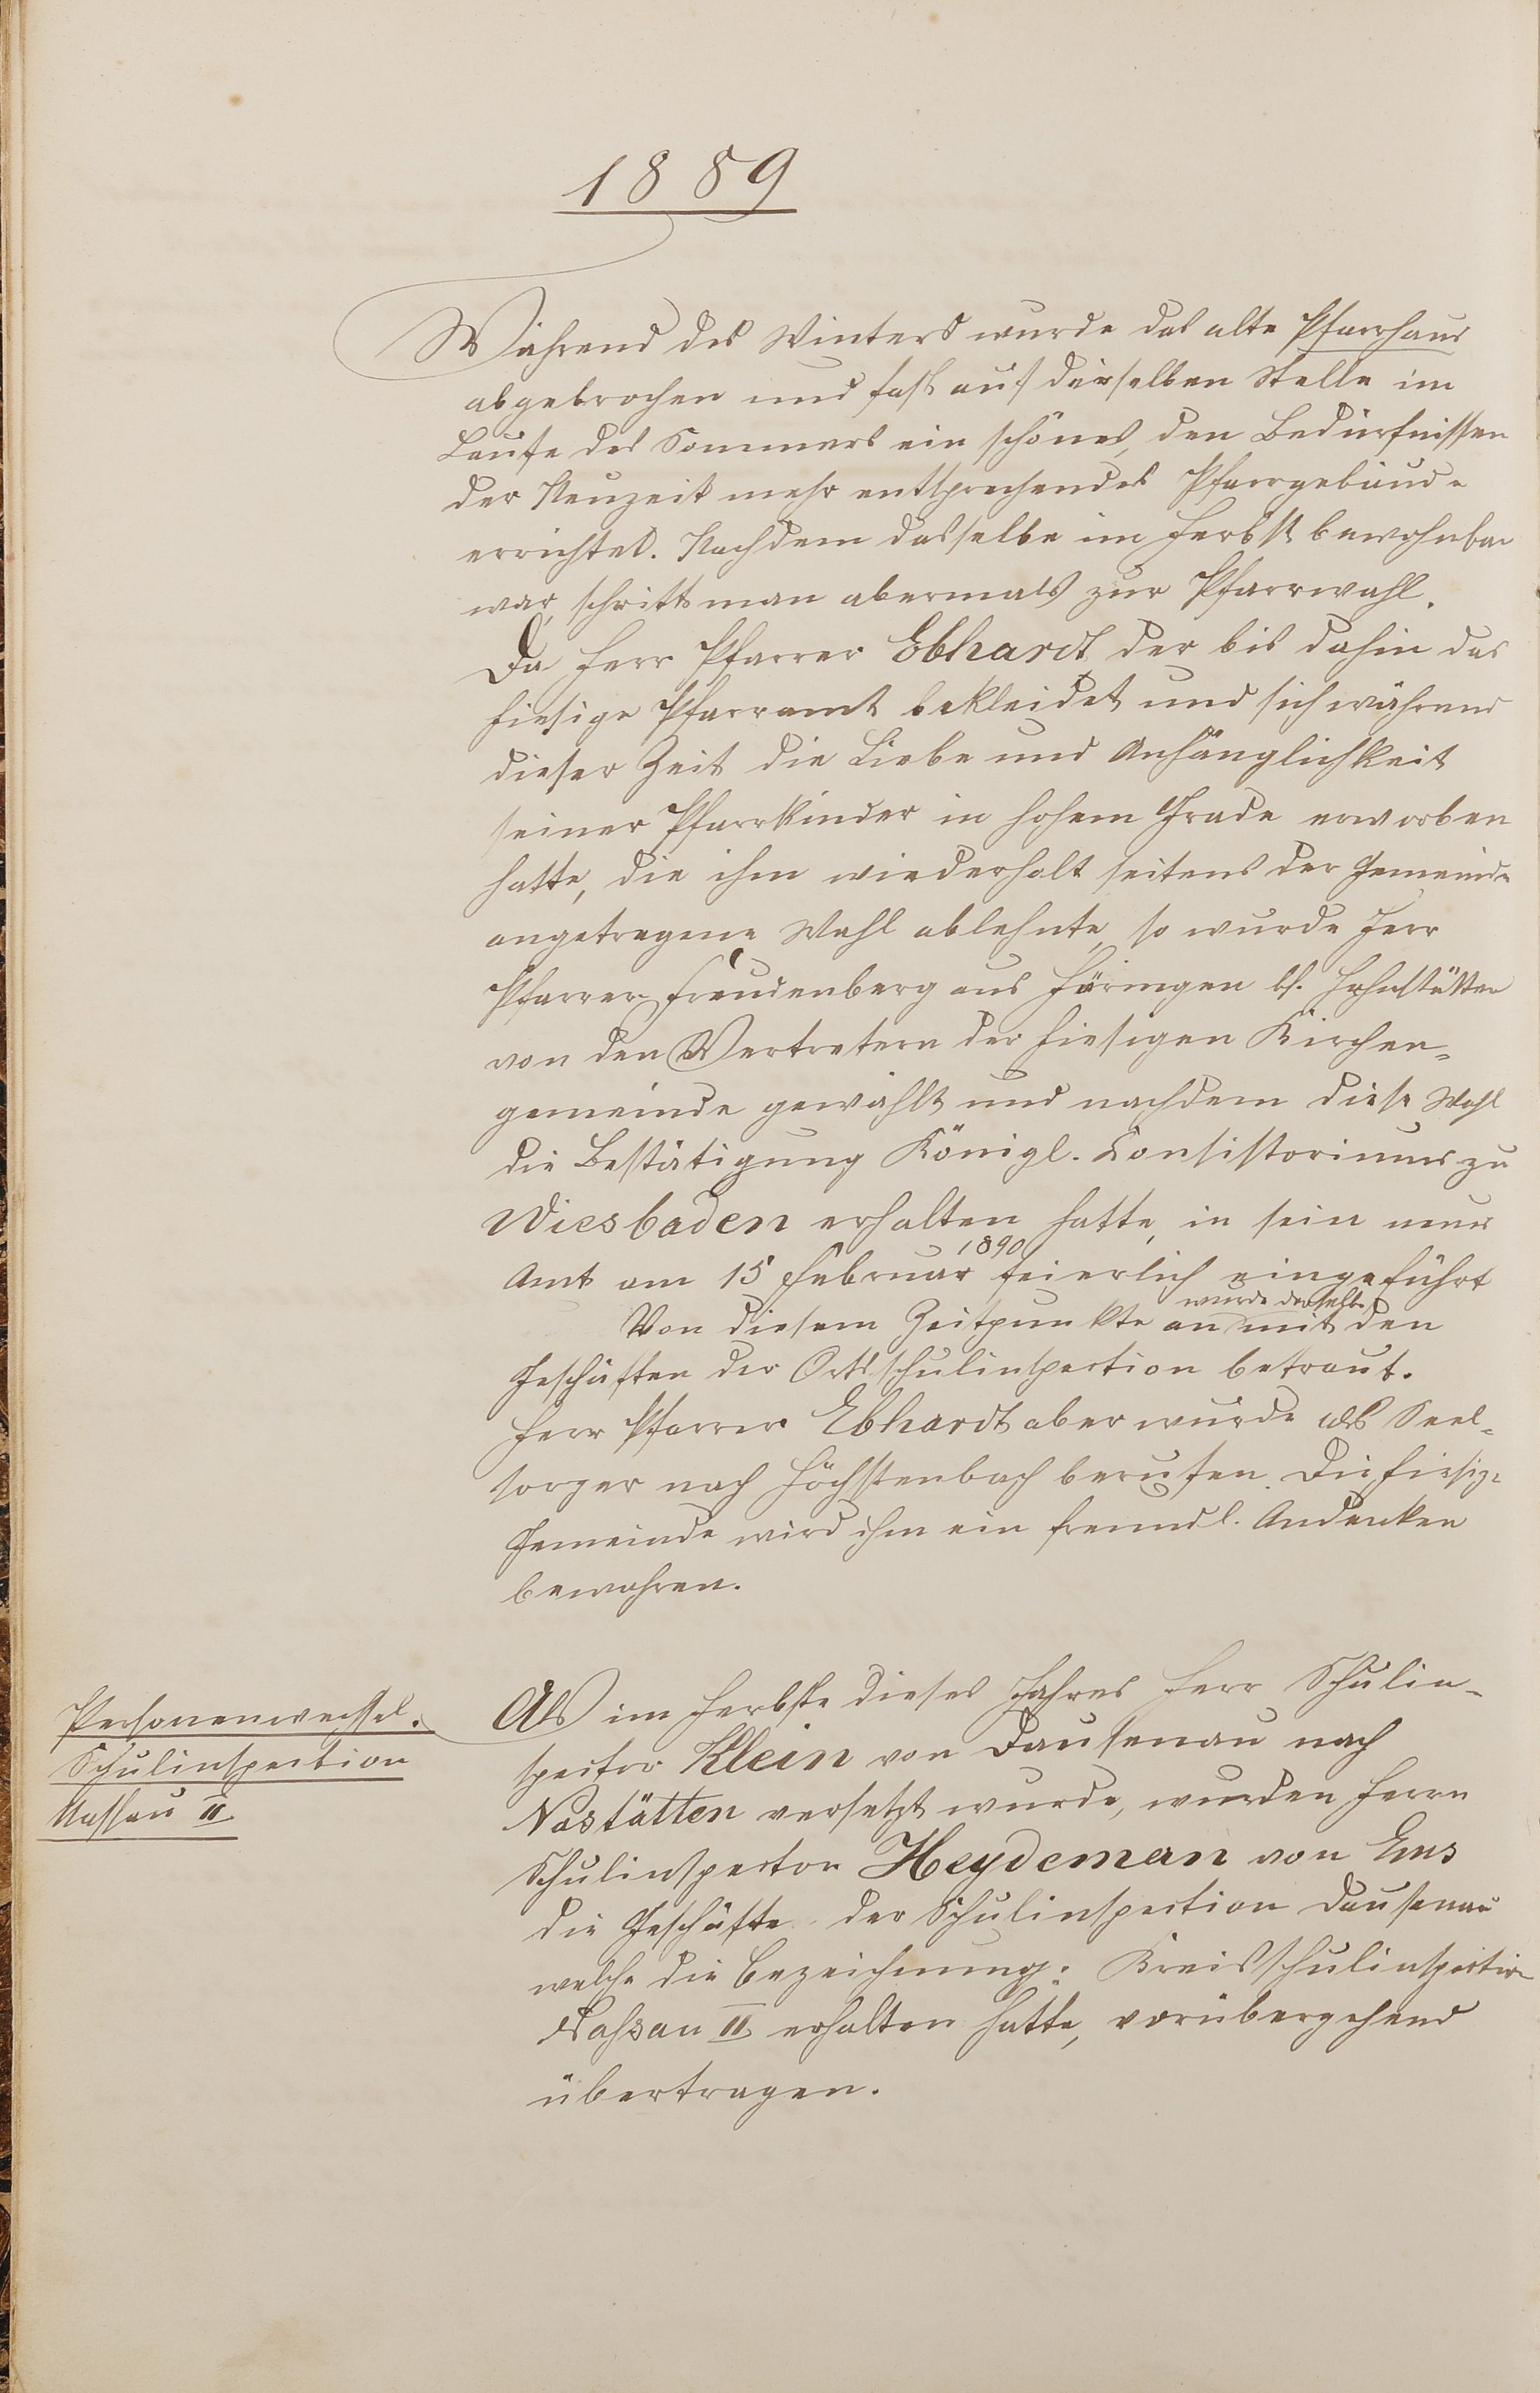 1889
Während des Winters wurde das alte Pfarrhaus
abgebrochen und fast auf derselben Stelle im
Laufe des Sommers ein schönes, den Bedürfnissen
der Neuzeit mehr entsprechendes Pfarrgebäude
errichtet. Nachdem dasselbe im Herbst bewohnbar
war, schritt man abermals zur Pfarrwahl.
Da Herr Pfarrer Ebhardt, der bis dahin das
hiesige Pfarramt bekleidet und sich während
dieser Zeit die Liebe und Anhänglichkeit
seiner Pfarrkinder in hohem Grade erworben
hatte, die ihm wiederholt seitens der Gemeinde
angetragene Wahl ablehnte, so wurde Herr
Pfarrer Freudenberg aus bs. Hahnstätten
von den Vertretern der hiesigen Kirchen-
gemeinde gewählt und nachdem diese Wahl
die Bestätigung Königl. Consistoriums zu
Wiesbaden erhalten hatte, in sein neues
Amt am 15 Februar 1890 feierlich eingeführt
Von diesem Zeitpunkte an wurde derselbe mit den
Geschäften der Ortsschulinspection betraut.
Herr Pfarrer Ebhardt aber wurde als Seel-
sorger nach Höchstenbach berufen. Die hiesige
Gemeinde wird ihm ein freundl. Andenken
bewahren.
Personenwechsel.
Schulinspection
Nassau II
Als im Herbste dieses Jahres Herr Schulin-
spector Klein von Dausenau nach
Nastätten versetzt wurde, wurden Herrn
Schulinspector Heydeman von Ems
die Geschäfte der Schulinspection Dausenau
welche die Bezeichnung: Kreisschulinspection
Naßau II erhalten hatte, vorübergehend
übertragen.